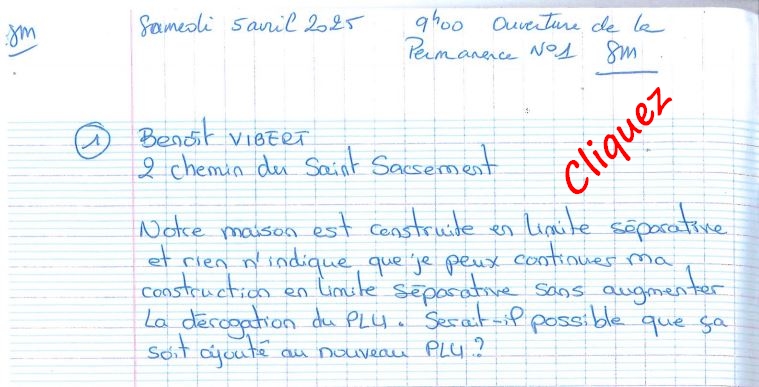 Samedi 5 avril 2025 9h00 Ouverture de la
Permanence N°1 SM
SM
Cliquez
① Benoît VIBERT
2 chemin du Saint Sacrement
Notre maison est construite en limite séparative
et rien n'indique que je peux continuer ma
construction en limite séparative sans augmenter
La dérogation du PLU. Serait-il possible que ça
soit ajouté au nouveau PLU ?